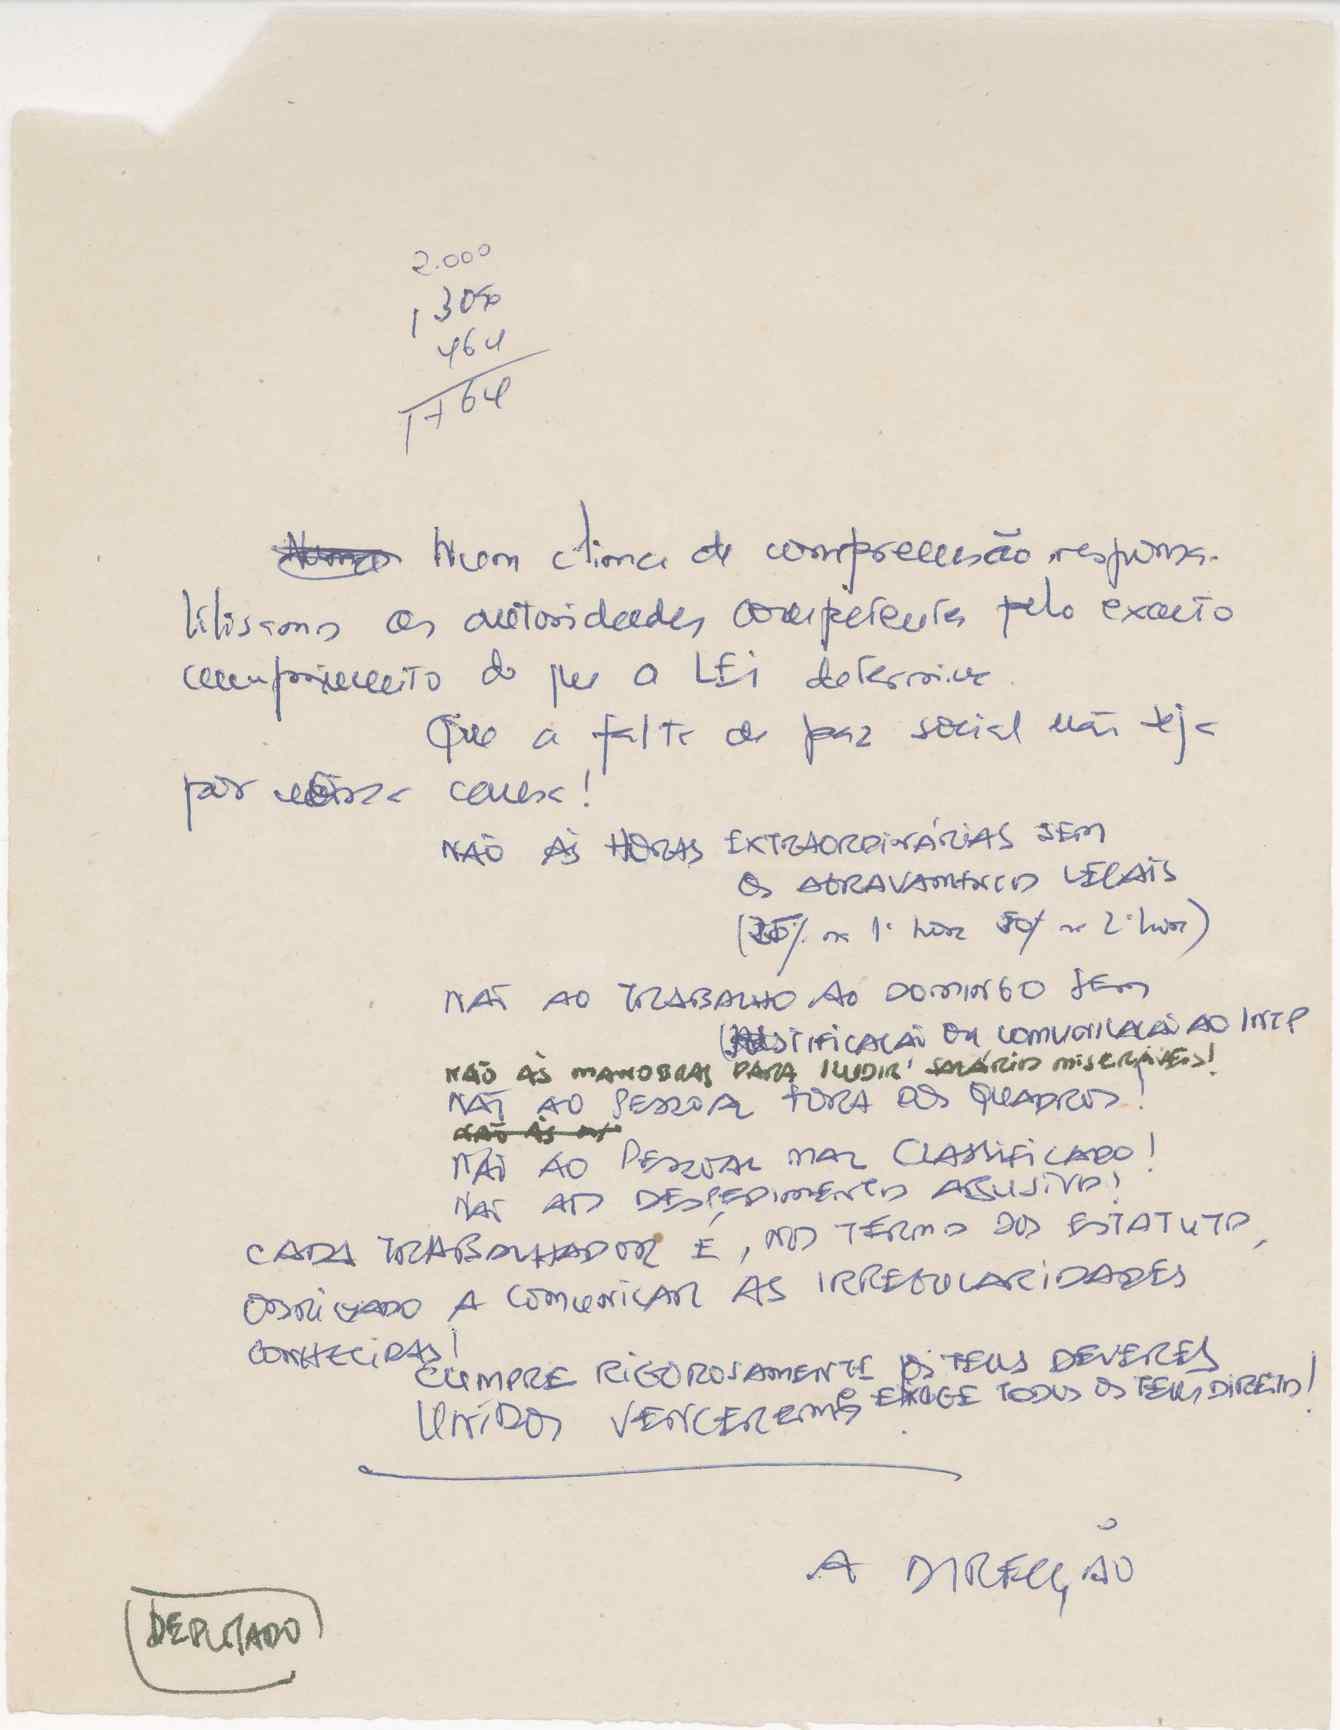 2.000
1 300
464
1764
Num clima de compreensão responsa-
bilisamos as autoridades competentes pelo exacto
cumprimento do que a LEi determina.
Que a falta de paz social não seja
por nossa causa!
NÃO ÀS HORAS EXTRAORDINÁRIAS SEM
OS AGRAVAMENTOS LEGAIS
(25% na 1ª hora 50% na 2ª hora)
NÃO AO TRABALHO AO DOMINGO SEM
JUSTIFICAÇÃO OU COMUNICAÇÃO AO INTP
NÃO ÀS MANOBRAS PARA ILUDIR SALÁRIOS MISERÁVEIS!
NÃO AO PESSOAL FORA DOS QUADROS!
NÃO ÀS
NÃO AO PESSOAL MAL CLASSIFICADO!
NÃO AOS DESPEDIMENTOS ABUSIVOS!
CADA TRABALHADOR É, NOS TERMOS DOS ESTATUTOS,
OBRIGADO A COMUNICAR AS IRREGULARIDADES
CONHECIDAS!
CUMPRE RIGOROSAMENTE OS TEUS DEVERES
e EXIGE TODOS OS TEUS DIREITOS!
UNIDOS VENCEREMOS.
A DIRECÇÃO
DEPUTADO